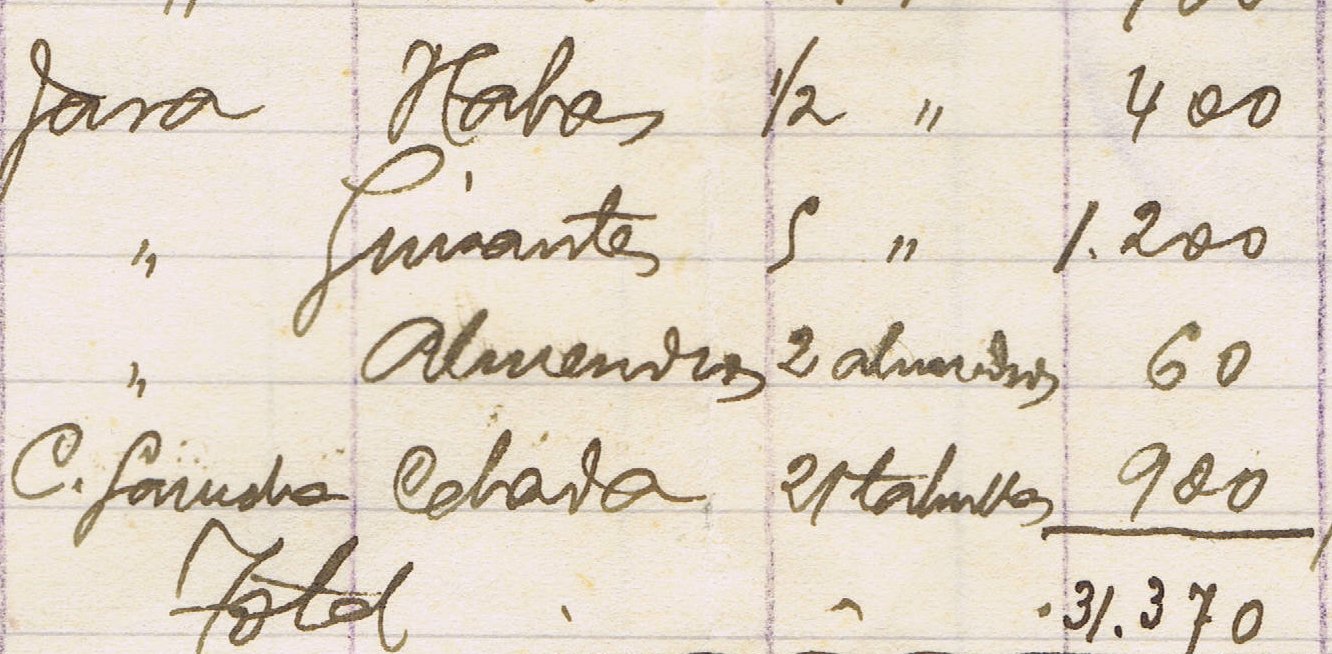 Jara Habas 1/2 " 400
" Guisantes 5 " 1.200
" Almendros 2 almendros 60
C. Garrucha Cebada 21 tahullas 900
Total 31.370